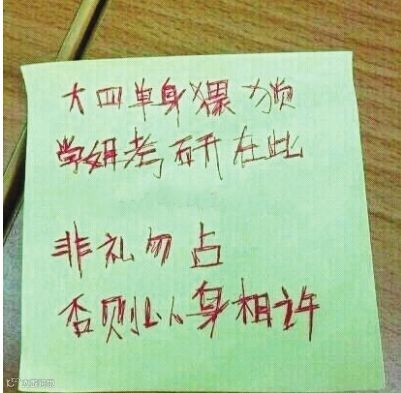 大四单身猥琐
学姐考研在此
非礼勿占
否则以身相许